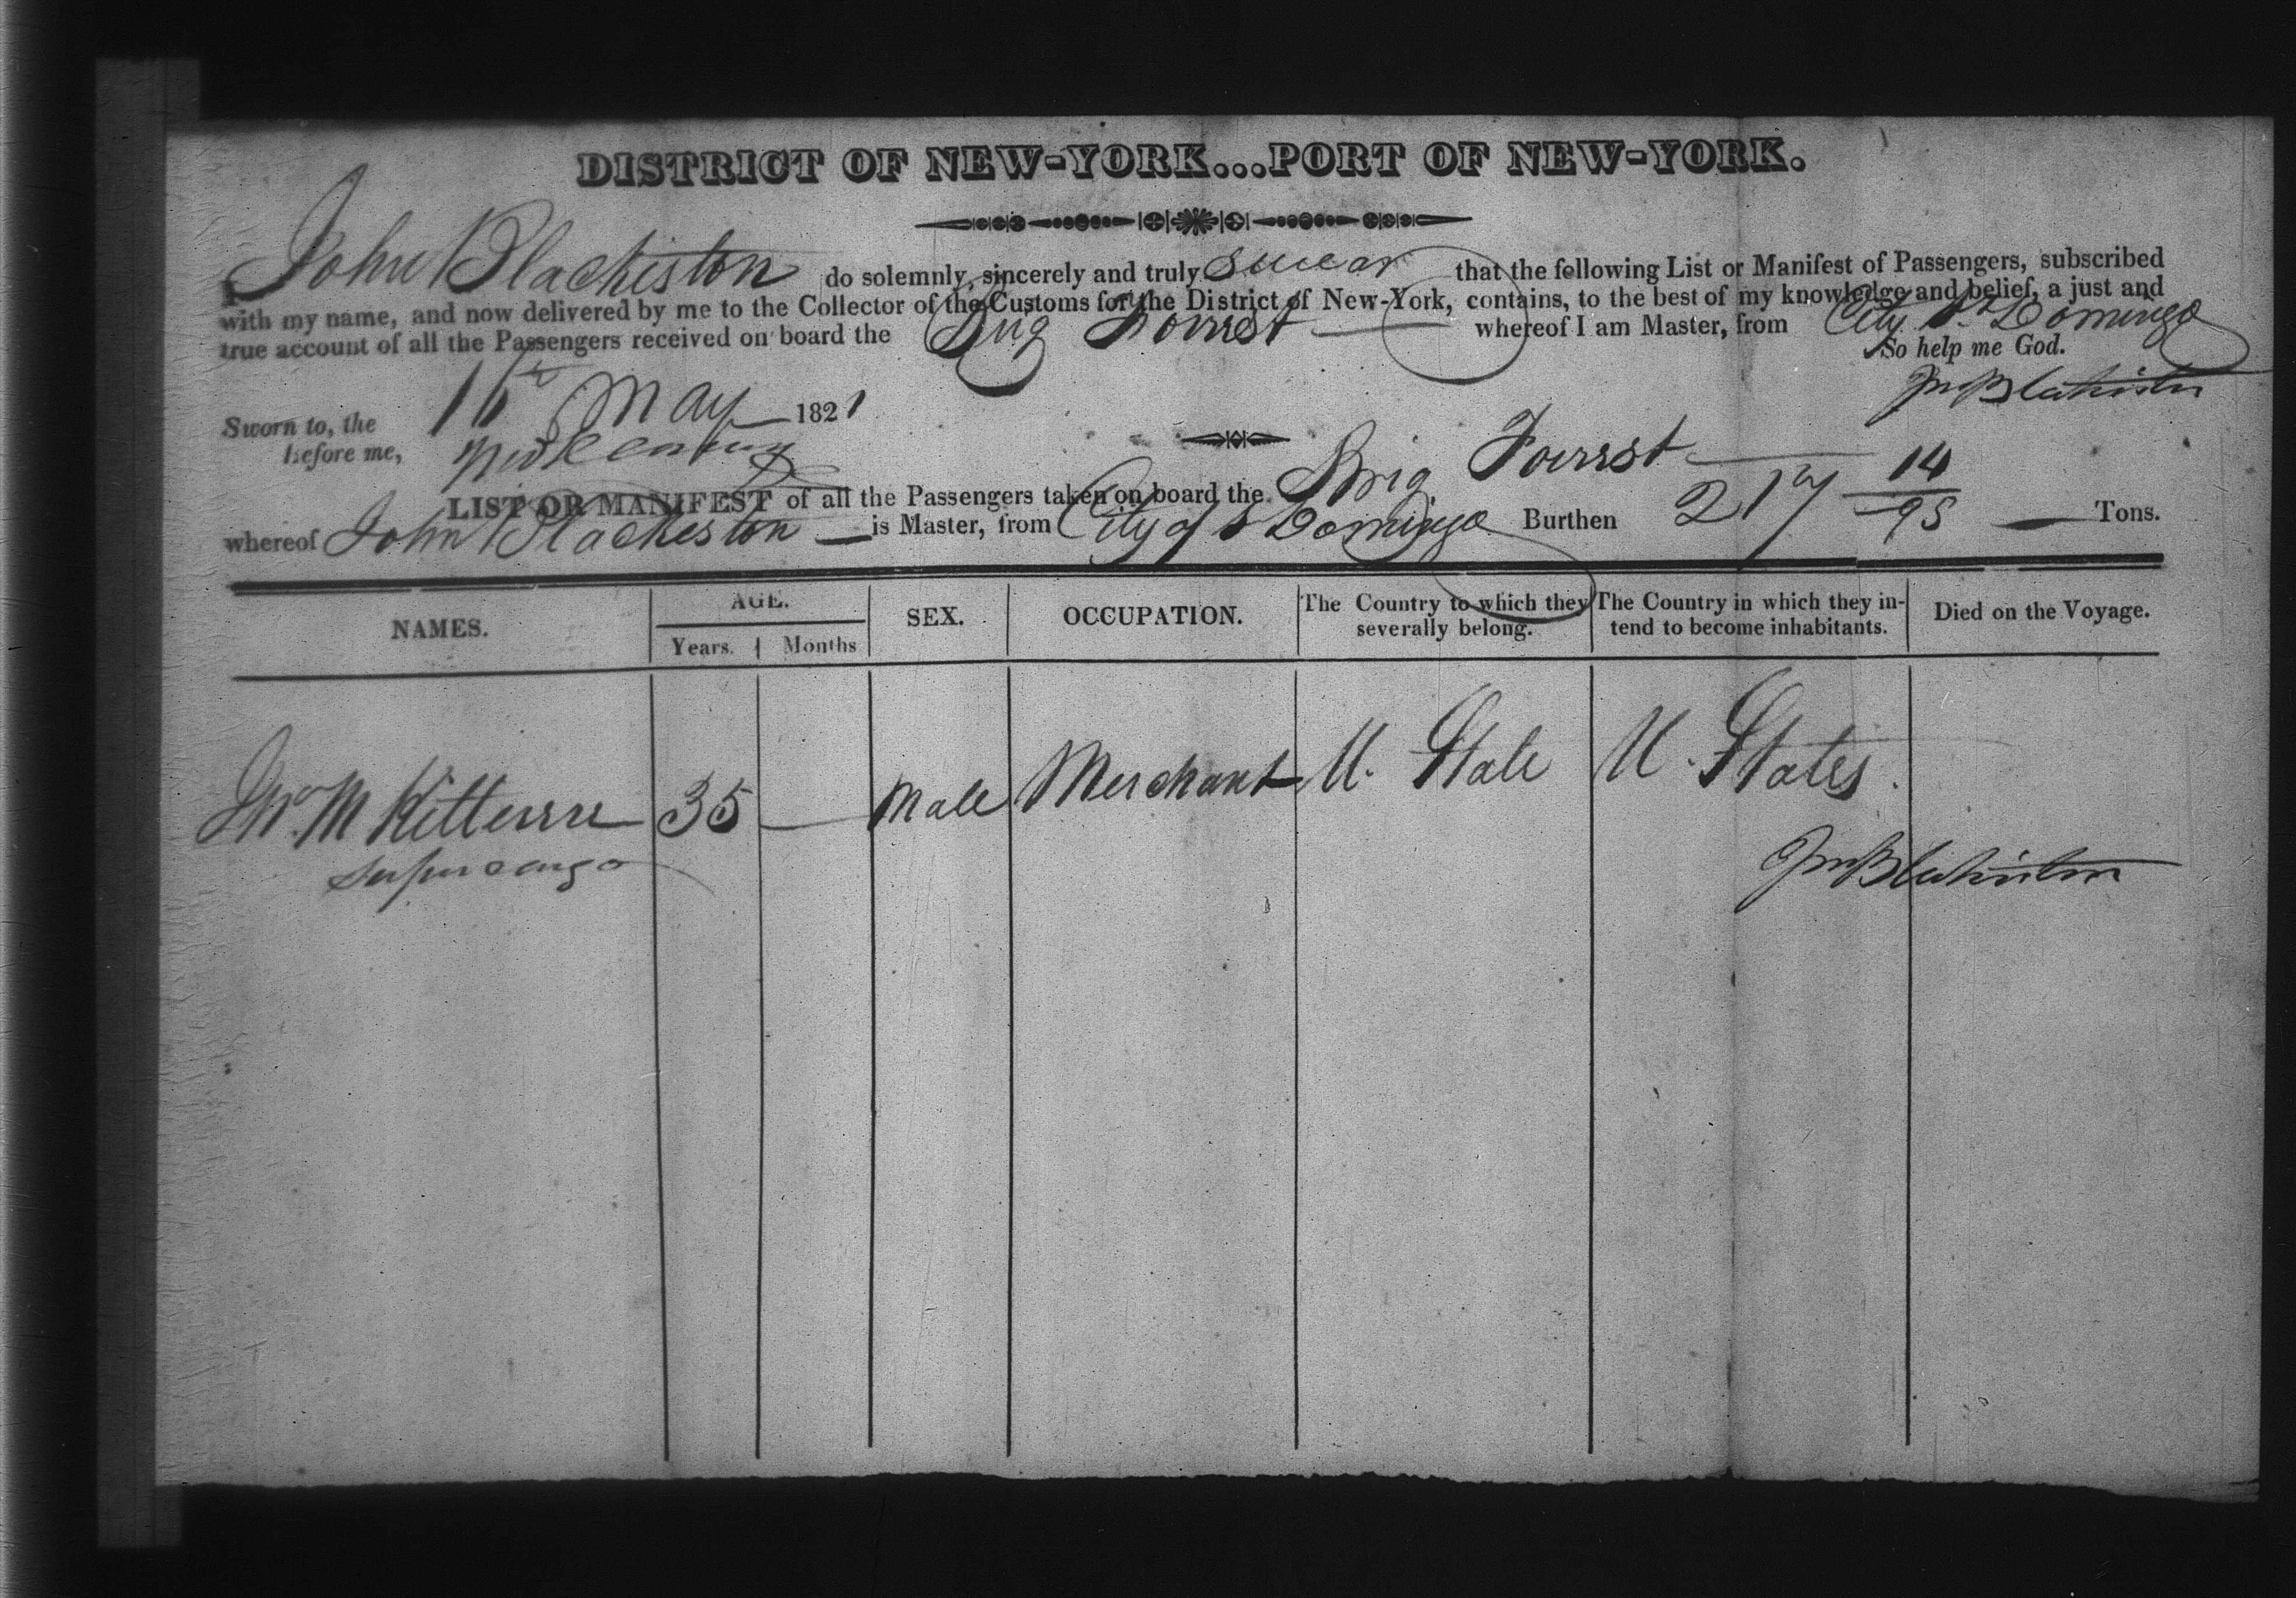 DISTRICT OF NEW-YORK...PORT OF NEW-YORK.
I John Blackiston do solemnly, sincerely and truly swear that the following List or Manifest of Passengers, subscribed
with my name, and now delivered by me to the Collector of the Customs for the District of New-York, contains, to the best of my knowledge and belief, a just and
true account of all the Passengers received on board the Brig Forrest whereof I am Master, from City St Domingo
So help me God.
Jno Blackiston
Sworn to, the 16 May 1821
before me,
LIST OR MANIFEST of all the Passengers taken on board the Brig Forrest
whereof John Blackiston is Master, from City of St Domingo Burthen 217 14/95 Tons.
NAMES. AGE. SEX. OCCUPATION. The Country to which they severally belong. The Country in which they intend to become inhabitants. Died on the Voyage.
Years. Months
Jno. M 35 Male Merchant U. State U. States
supercargo
Jno Blackiston